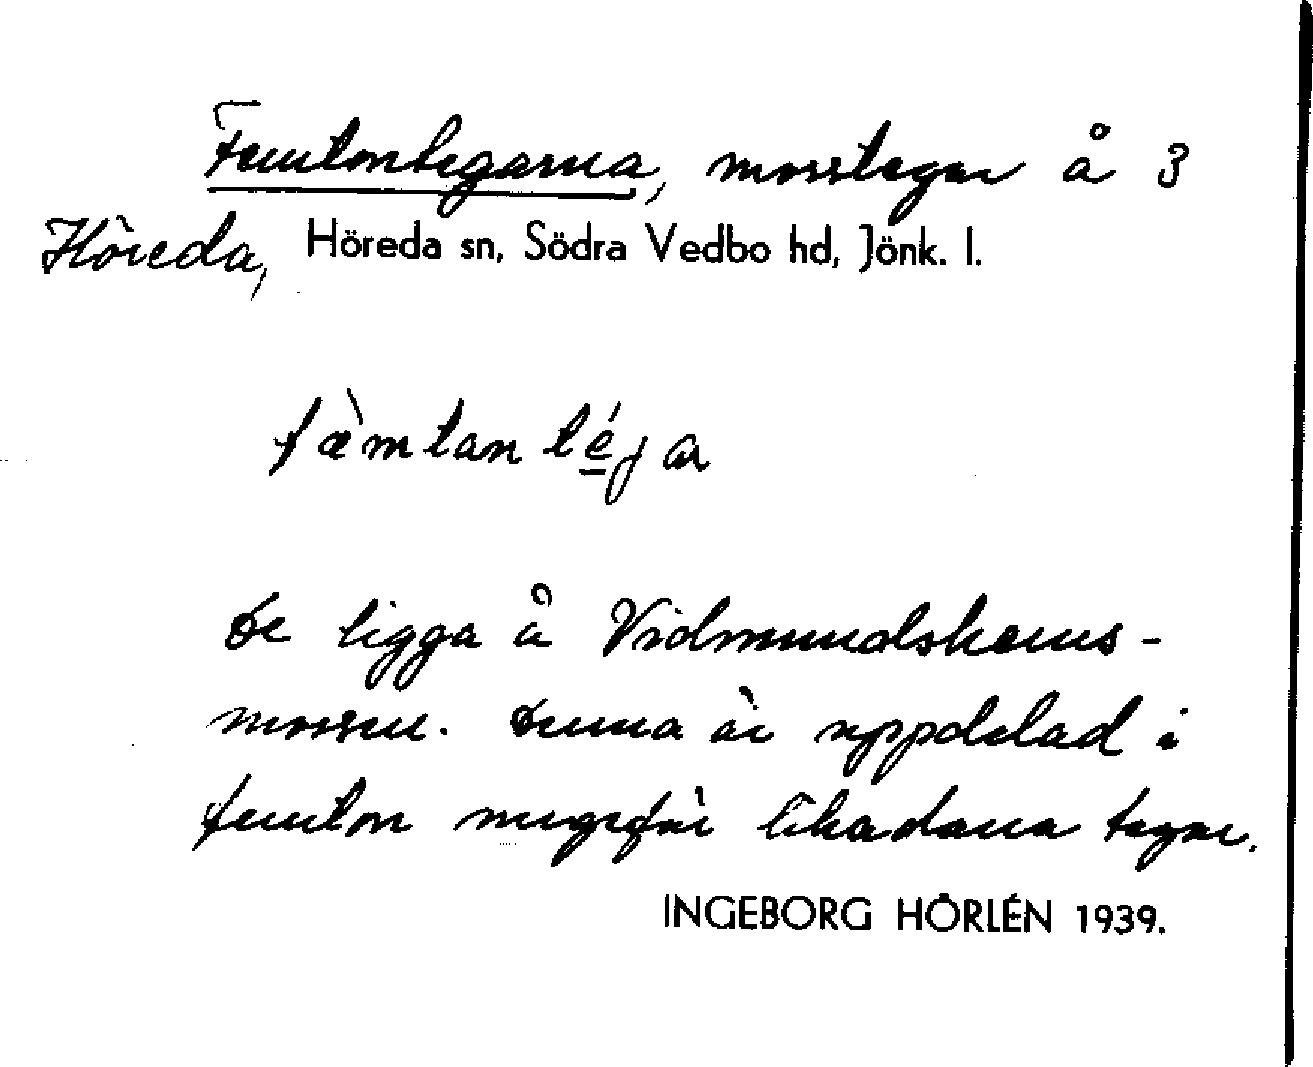 Femtontegarna, mosstegar å 3
Höreda, Höreda sn, Södra Vedbo hd, Jönk. l.
fæ̀mtan té̲jar
De ligga å Vidmundshems-
mossen. Denna är uppdelad i
femton ungefär likadana tegar.
INGEBORG HÖRLÉN 1939.